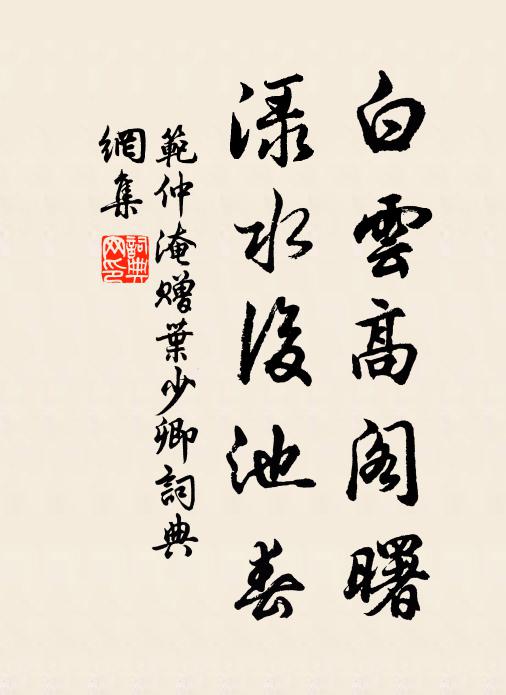 白雲高阁曙
渌水後池春
範仲淹赠葉少卿詞典
網集
詞典
网印